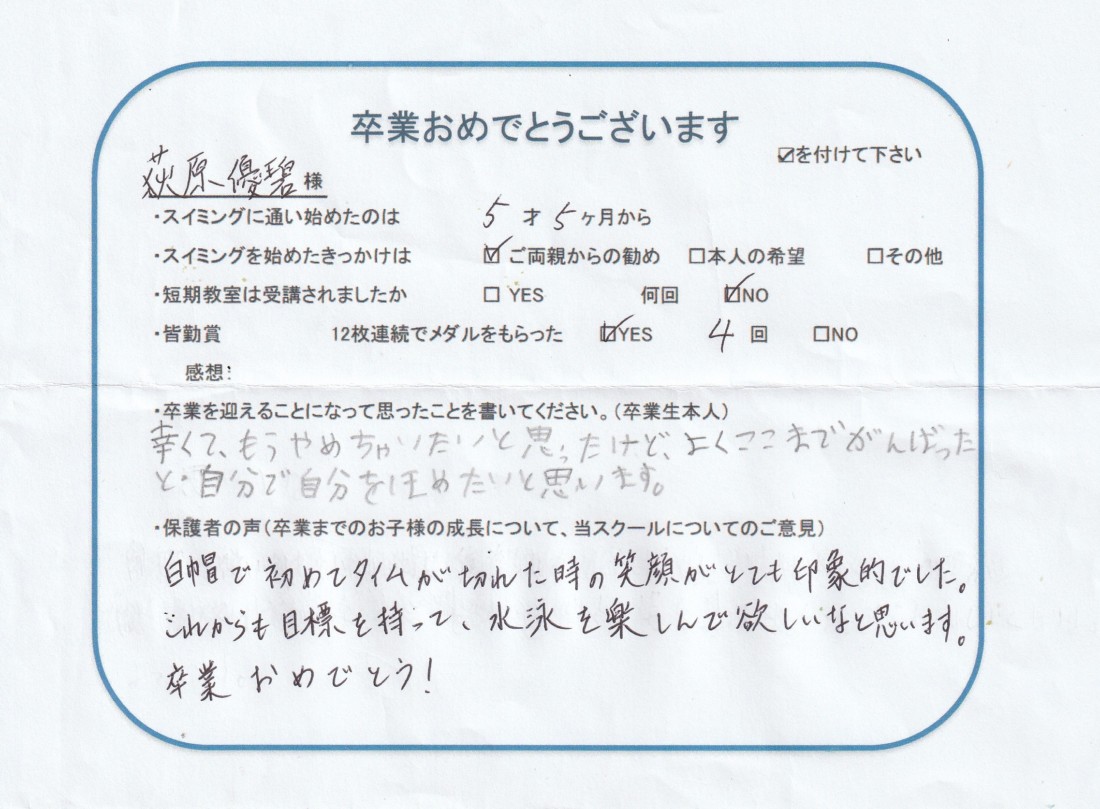 卒業おめでとうございます
☑を付けて下さい
荻原優碧様
・スイミングに通い始めたのは 5才5ヶ月から
・スイミングを始めたきっかけは ☑ご両親からの勧め □本人の希望 □その他
・短期教室は受講されましたか □ YES 何回 ☑NO
・皆勤賞 12枚連続でメダルをもらった ☑YES 4回 □NO
感想：
・卒業を迎えることになって思ったことを書いてください。（卒業生本人）
辛くて、もうやめちゃいたいと思ったけど、よくここまでがんばった
と自分で自分をほめたいと思います。
・保護者の声（卒業までのお子様の成長について、当スクールについてのご意見）
白帽で初めてタイムが切れた時の笑顔がとても印象的でした。
これからも目標を持って、水泳を楽しんで欲しいなと思います。
卒業おめでとう！